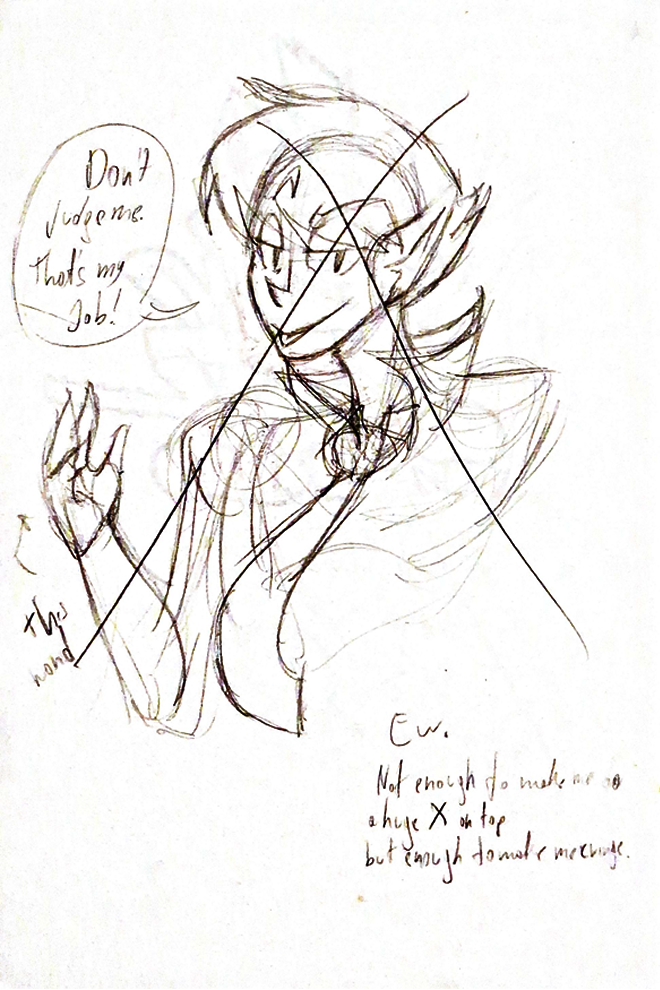 Don't
Judge me.
That's my
Job!
This
hand
Ew.
Not enough to make me do
a huge X on top
but enough to make me cringe.